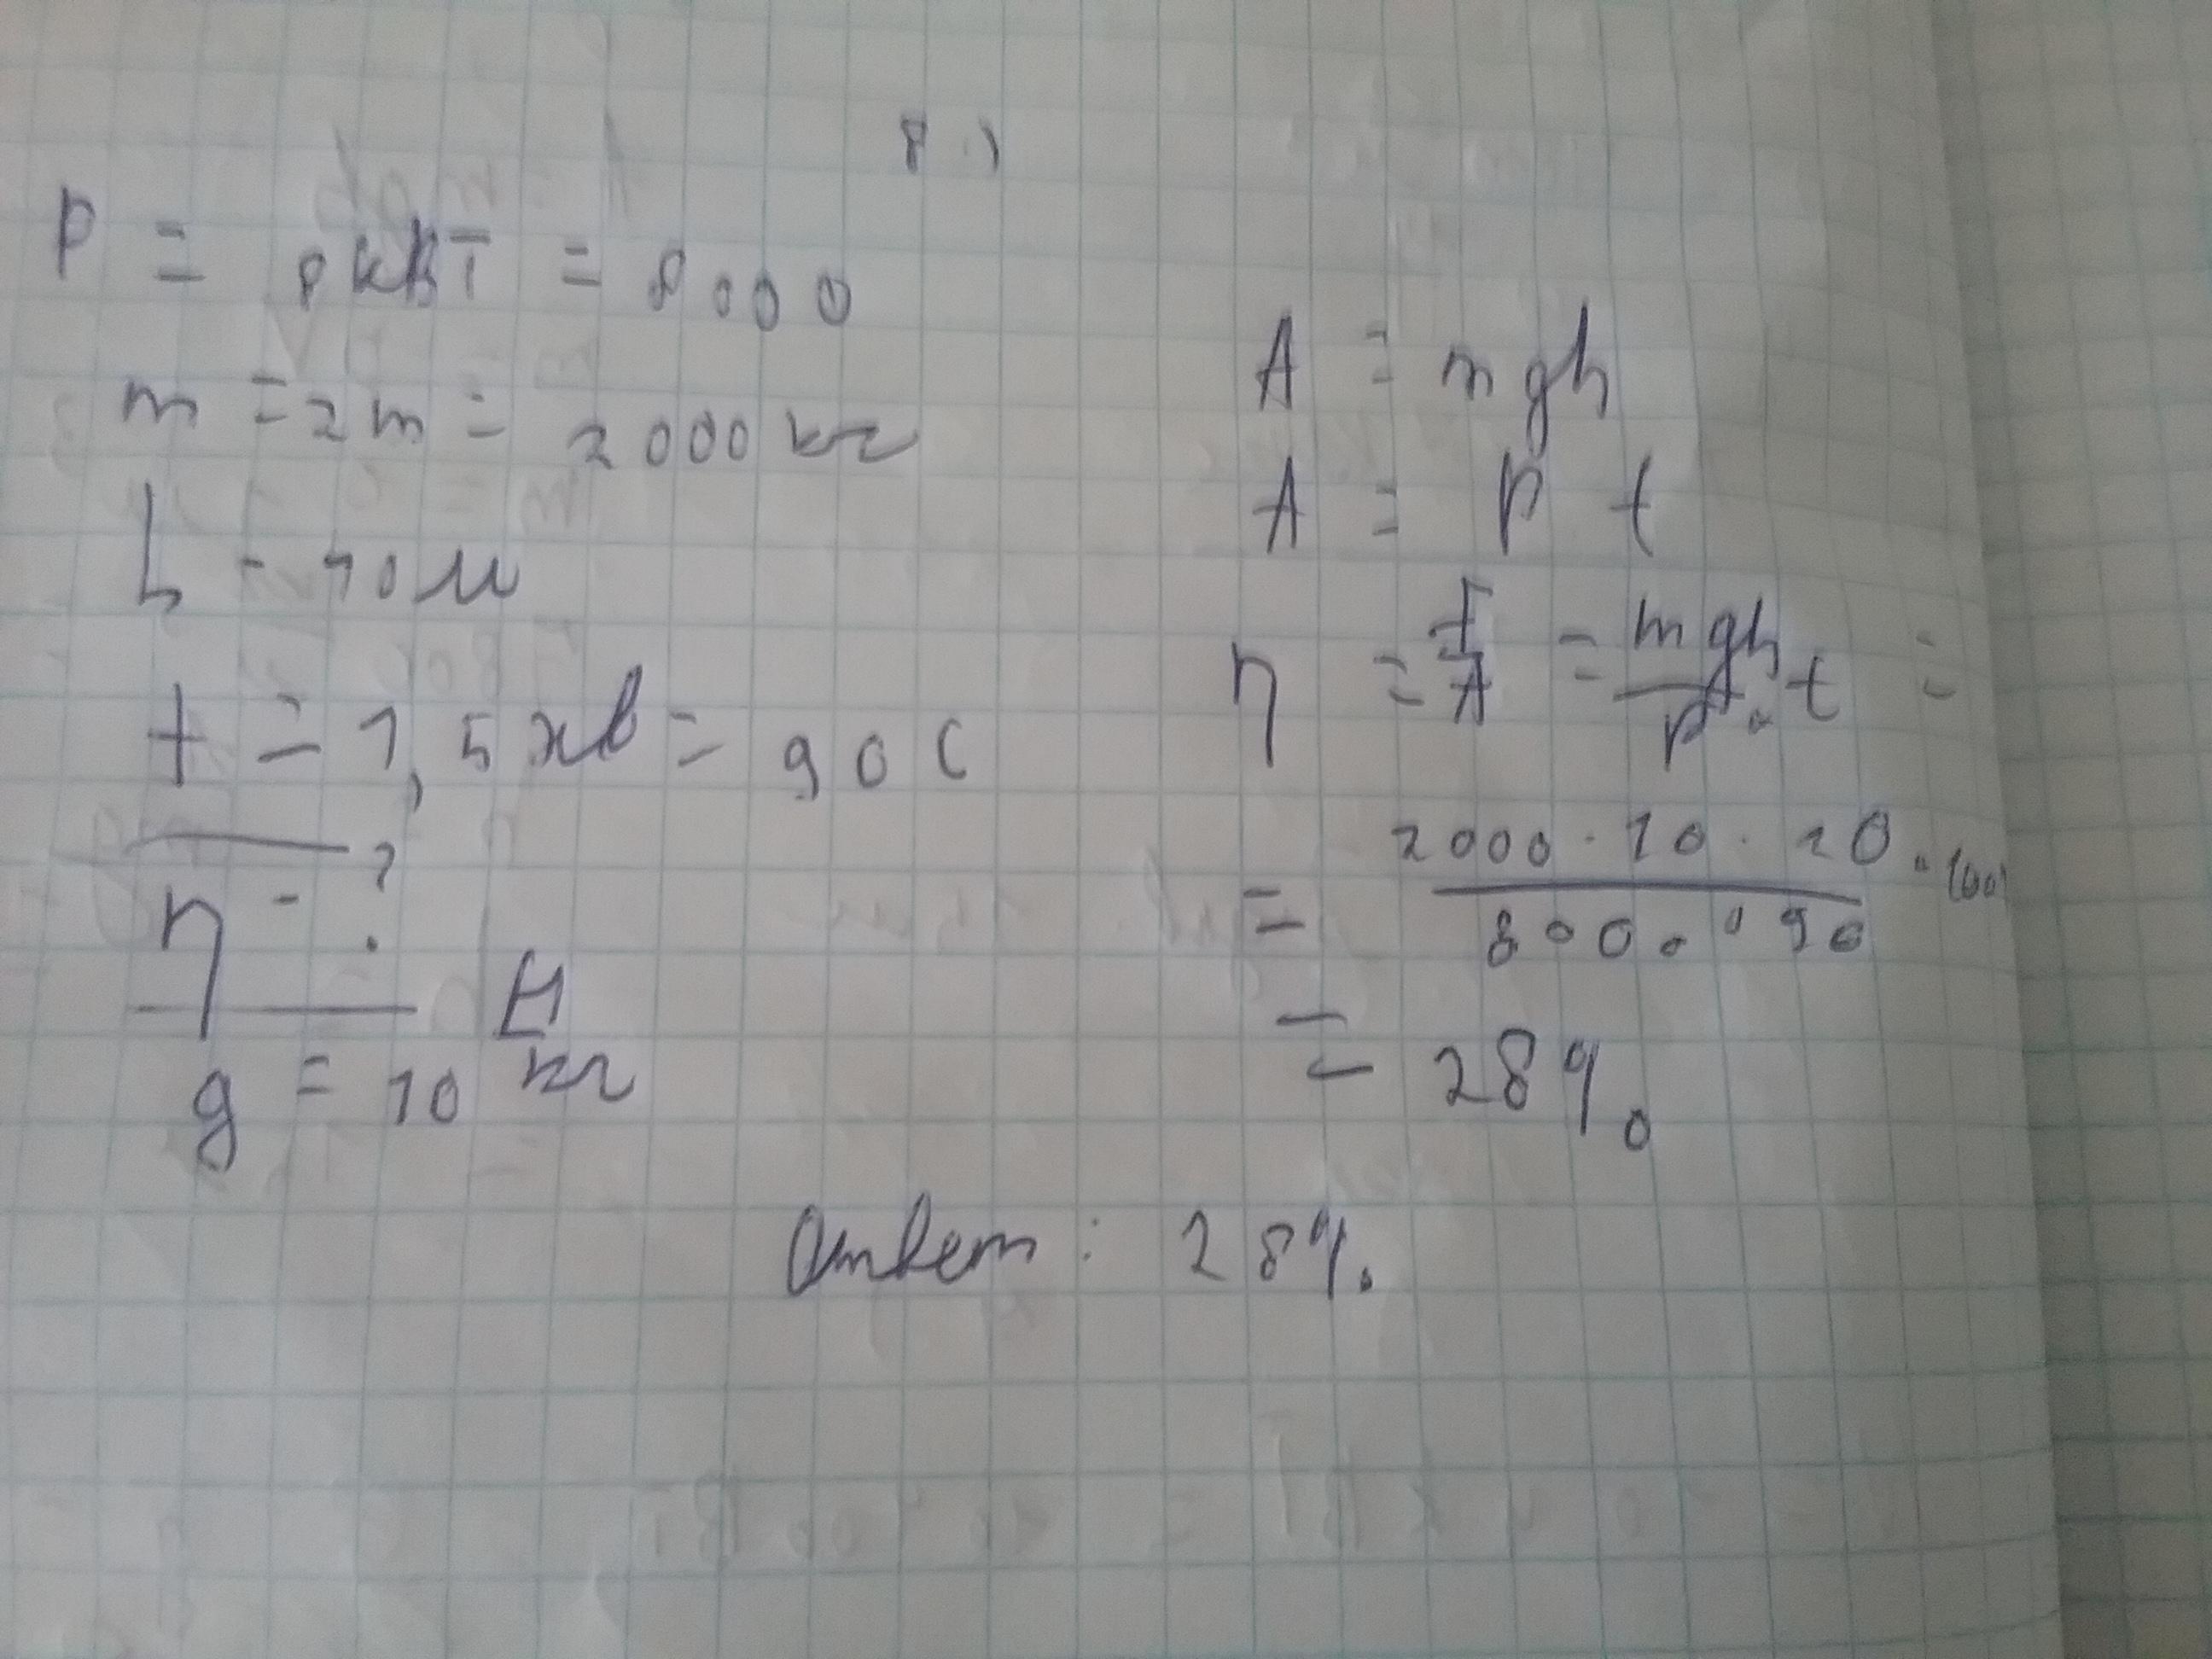 8.)
P = 8кВт = 8000
m = 2m = 2000 кг
h - 10м
t = 1,5 хв = 90 с
η - ?
g = 10 Н/кг
A = mgh
A = P t
η = = mgh / P · t =
= 2000 · 10 · 10 · 100 / 8000 · 90
= 28%
Ответ: 28%